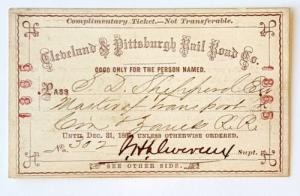 Complimentary Ticket.—Not Transferable.
Cleveland & Pittsburgh Rail Road Co.
GOOD ONLY FOR THE PERSON NAMED.
1865
1865
PASS
Master of Transport'n
R.R.
UNTIL DEC. 31, 1865 UNLESS OTHERWISE ORDERED.
No. 302
Supt.
SEE OTHER SIDE.